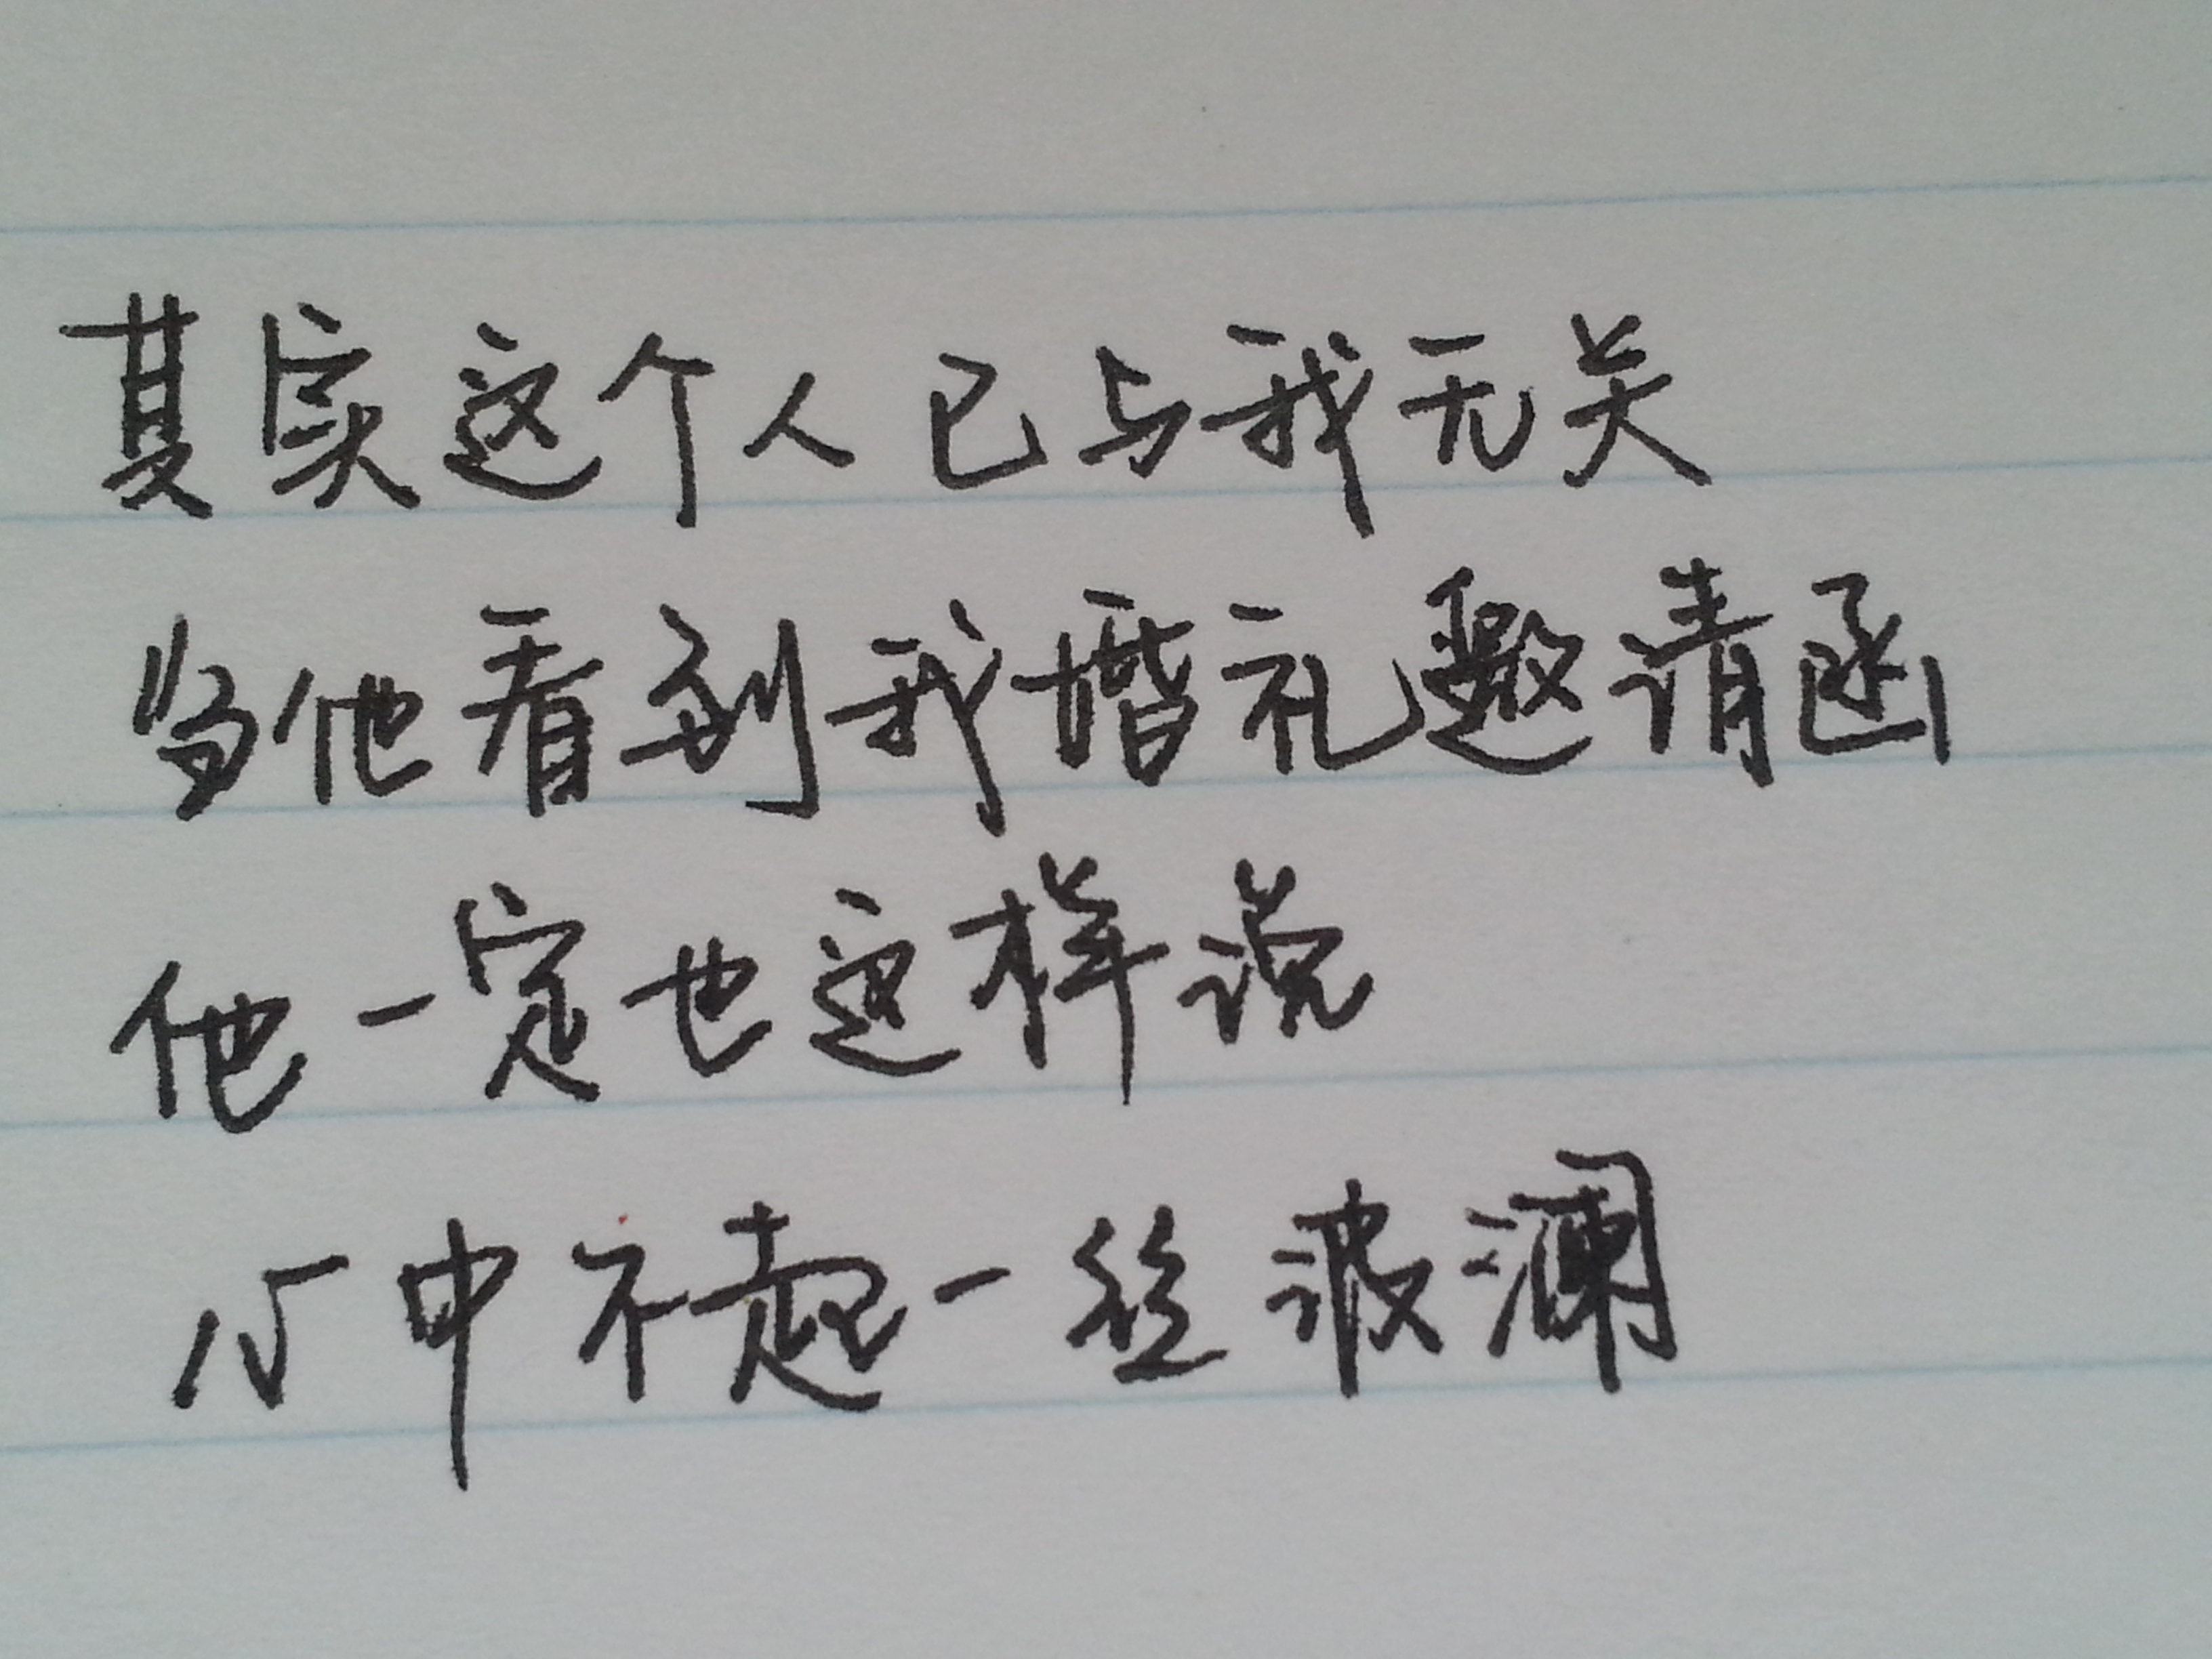 其实这个人已与我无关
当他看到我婚礼邀请函
他一定也这样说
心中不起一丝波澜